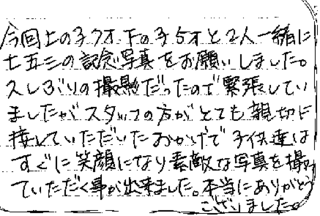 今回上の子7才、下の子5才と2人一緒に
七五三の記念写真をお願いしました。
久しぶりの撮影だったので緊張してい
ましたがスタッフの方がとても親切に
接していただいたおかげで子供達は
すぐに笑顔になり素敵な写真を撮っ
ていただく事が出来ました。本当にありがとう
ございました。